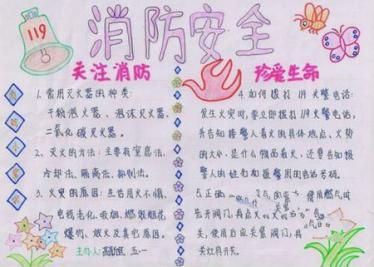 消防安全
119
关注消防
珍爱生命
1. 常用灭火器的种类:
干粉灭火器、泡沫灭火器、
二氧化碳灭火器。
2. 灭火的方法: 主要有窒息法、
冷却法、隔离法、抑制法。
3. 火灾的原因: 生活用火不慎、
电线老化、吸烟、燃放烟花
爆竹、放火及其它原因。
主办人
五一
4. 如何拨打119火警电话:
发生火灾时, 要立即拨打119火警电话,
并告知接警人着火的具体地点、火势
的大小, 是什么物品着火, 还要告知接
警人的姓名和报警用的电话号码。
5. 正确
使用燃气
先开阀门, 再点火
关, 使用后应关紧阀门, 再
关灶具开关。